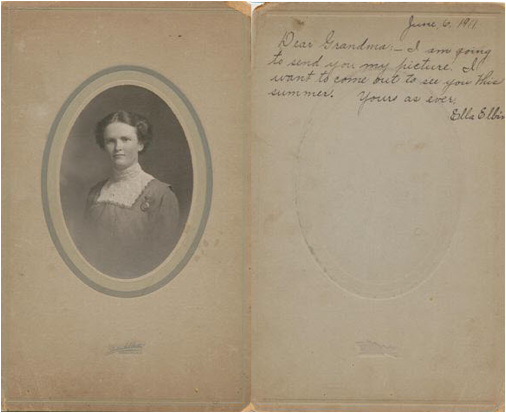 June, 6, 1911
Dear Grandma:— I am going
to send you my picture. I
want to come out to see you this
summer. Yours as ever,
Ella Elbin